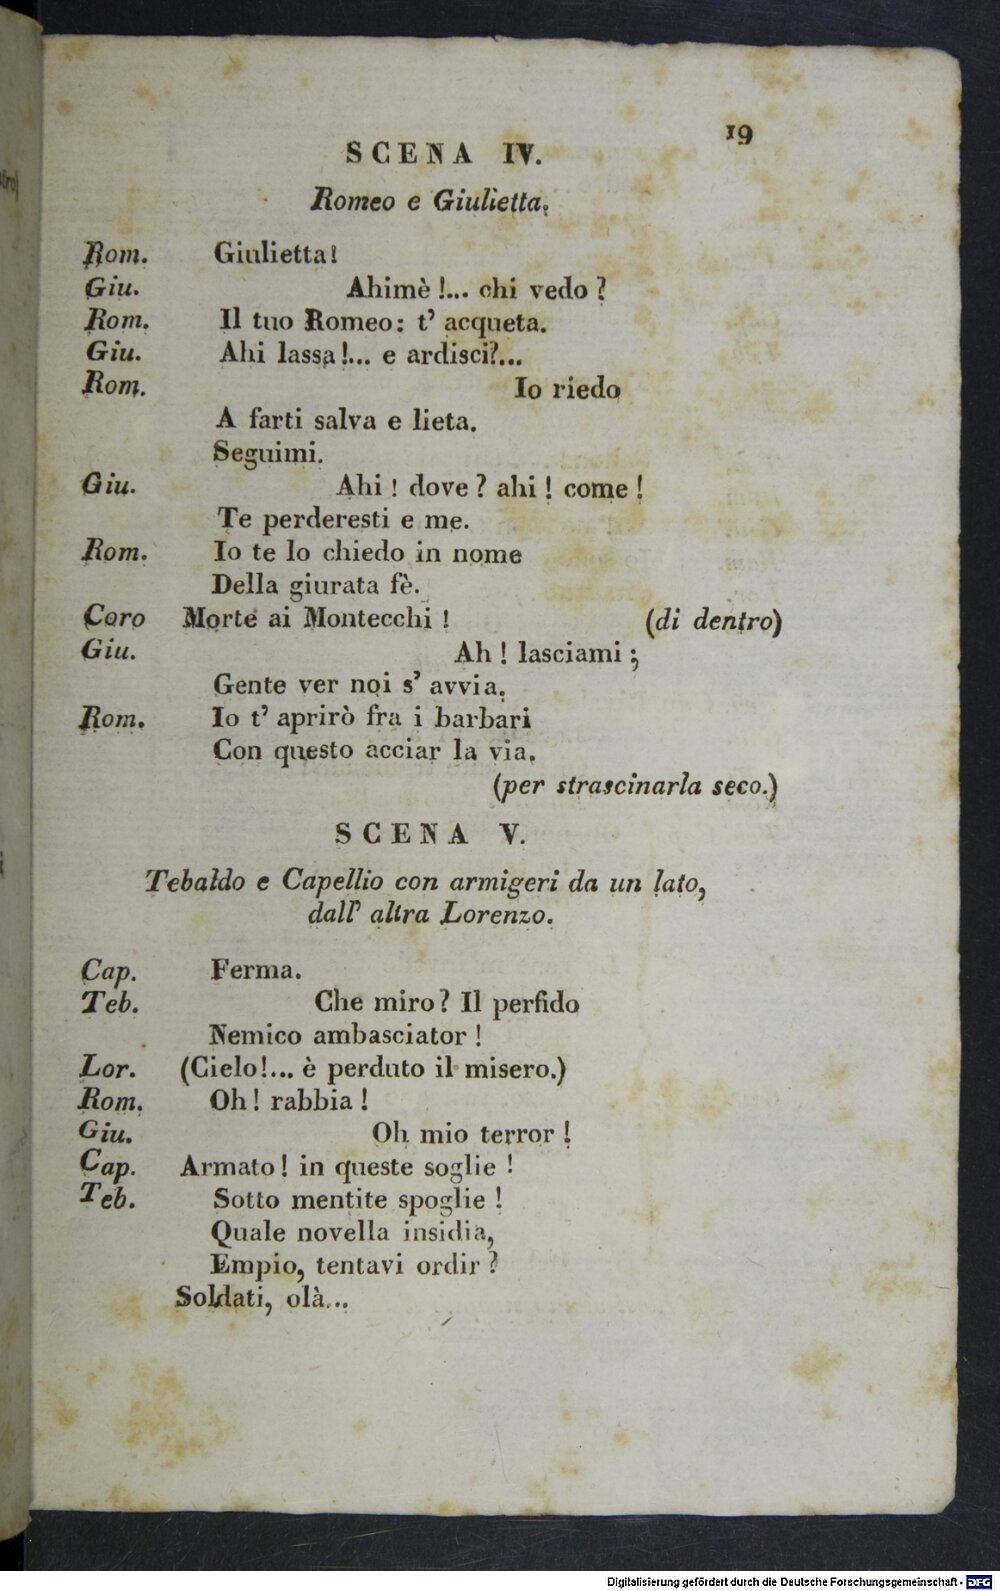 19
SCENA IV.
Romeo e Giulietta.
Rom. Giulietta!
Giu. Ahimè!... chi vedo?
Rom. Il tuo Romeo: t' acqueta.
Giu. Ahi lassa!... e ardisci?...
Rom. Io riedo
A farti salva e lieta.
Seguimi.
Giu. Ahi! dove? ahi! come!
Te perderesti e me.
Rom. Io te lo chiedo in nome
Della giurata fè.
Coro Morte ai Montecchi! (di dentro)
Giu. Ah! lasciami;
Gente ver noi s' avvia.
Rom. Io t' aprirò fra i barbari
Con questo acciar la via.
(per strascinarla seco.)
SCENA V.
Tebaldo e Capellio con armigeri da un lato,
dall' altra Lorenzo.
Cap. Ferma.
Teb. Che miro? Il perfido
Nemico ambasciator!
Lor. (Cielo!... è perduto il misero.)
Rom. Oh! rabbia!
Giu. Oh mio terror!
Cap. Armato! in queste soglie!
Teb. Sotto mentite spoglie!
Quale novella insidia,
Empio, tentavi ordir?
Soldati, olà...
Digitalisierung gefördert durch die Deutsche Forschungsgemeinschaft - DFG